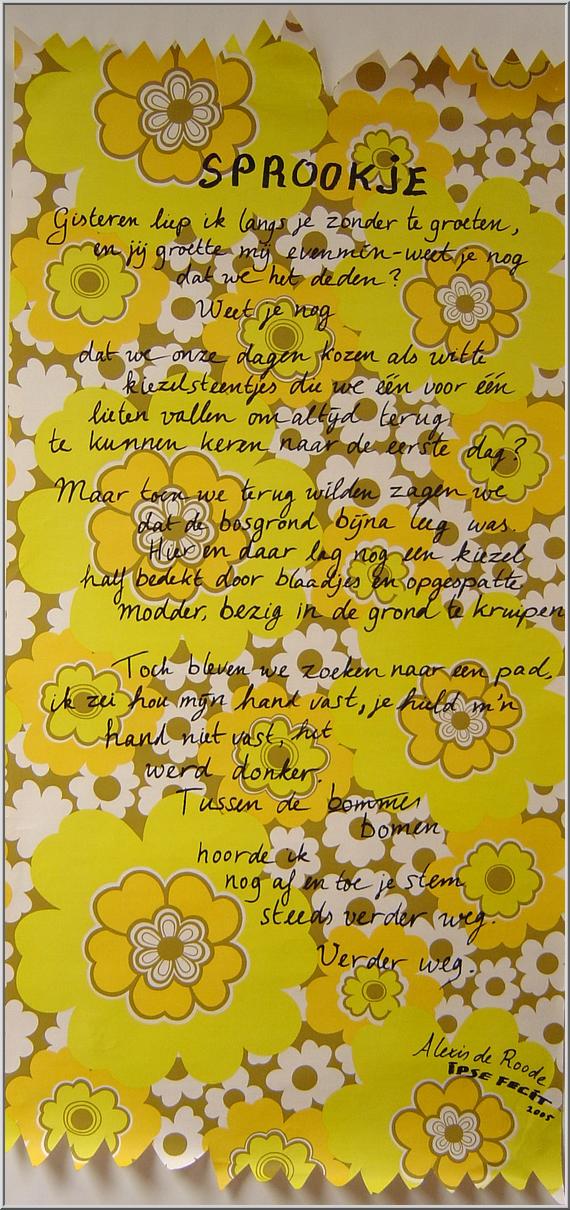 SPROOKJE
Gisteren liep ik langs je zonder te groeten,
en jij groette mij evenmin - weet je nog
dat we het deden?
Weet je nog
dat we onze dagen kozen als witte
kiezelsteentjes die we één voor één
lieten vallen om altijd terug
te kunnen keren naar de eerste dag?
Maar toen we terug wilden zagen we
dat de bosgrond bijna leeg was.
Hier en daar lag nog een kiezel
half bedekt door blaadjes en opgespatte
modder, bezig in de grond te kruipen
Toch bleven we zoeken naar een pad,
ik zei hou mijn hand vast, je hield m'n
hand niet vast, het
werd donker.
Tussen de bommen
bomen
hoorde ik
nog af en toe je stem
steeds verder weg.
Verder weg.
Alexis de Roode
IPSE FECIT
2005